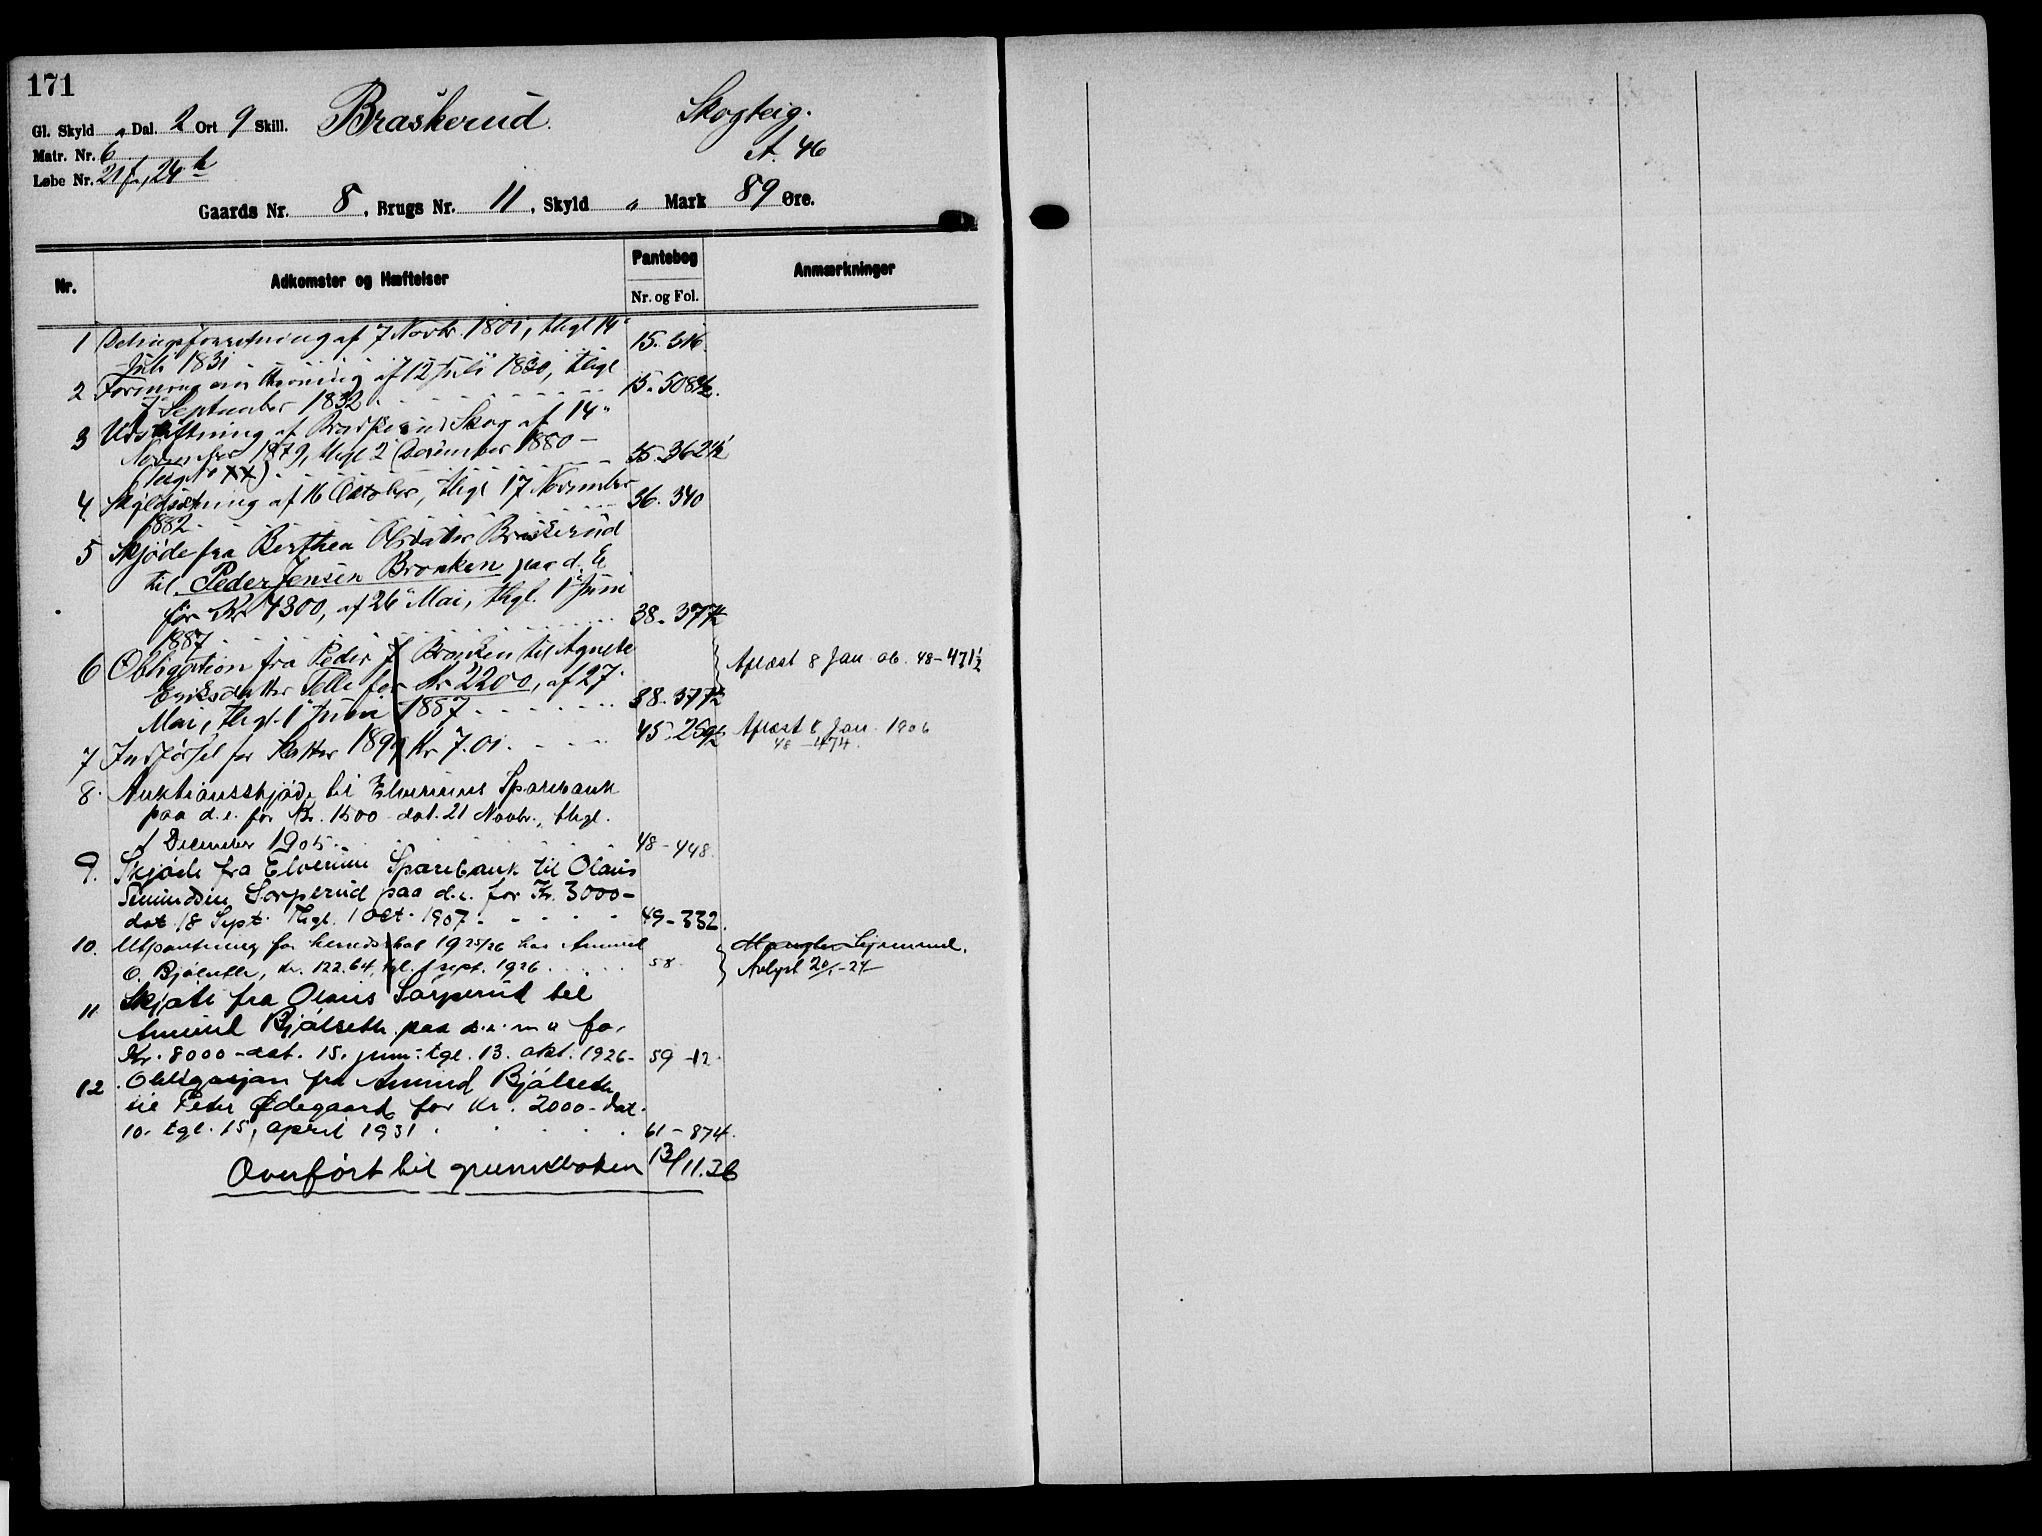 171
Gl. Skyld „ Dal. 2 Ort 9 Skill. Braskerud. Skogteig.
Matr. Nr. 6 A. 46
Løbe Nr. 21f, 24b
Gaards Nr. 8, Brugs Nr. 11, Skyld „ Mark 89 Øre.
Nr. Adkomster og Hæftelser Pantebog Nr. og Fol. Anmærkninger
1 Delingsforretning af 7 Novbr. 1801, thgl 14
Juli 1831 15. 316.
2 af 12 Juli 1830, thgl
7 September 1832 15. 508½.
3 Udskiftning af Braskerud Skog af 14
November 1879, thgl 2 December 1880 —
(Teig XX) 35. 362½
4. Skyldsætning af 16 Oktober, thgl 17 November
1882 36. 340
5 Skjøde fra Berthea Olsdatter Braskerud
til Peder Jensen Bronken paa d. E
for Kr 4300, af 26 Mai, thgl. 1 Juni
1887 38. 377½
6 Obligation fra Peder J. Bronken til Agnete
Eriksdatter for Kr 2200, af 27
Mai, thgl. 1 Juni 1887 38. 377½ Aflæst 8 Jan 06. 48–471½
7 Indførsel for Skatter 1899 Kr 7.01. 45. 259½ Aflæst 8 Jan. 1906
48–474.
8. Auktionsskjøde til Elverums Sparebank
paa d. e. for Kr. 1500 dat. 21 Novbr., thgl.
1 December 1905. 48–448.
9. Skjøde fra Elverums Sparebank til Olaus
Simundsen Sorperud paa d.e. for Kr. 3000–
dat 18 Sept. Thgl. 1 Oct. 1907. 49–332.
10. Utpantning for herredsskat 1925/26 hos Amund
O. Bjølseth, kr. 122.64, tgl. 1 sept. 1926 58. Mangler hjemmel.
Avlyst 20/1–27
11 Skjøte fra Olaus Sorperud til
Amund Bjølseth paa d.e. m fl for
Kr. 8000 – dat. 15. juni – tgl. 13. okt. 1926 – 59–12.
12. Obligasjon fra Amund Bjølseth
til Peter Ødegaard for kr. 2000 – dat.
10. tgl. 15, april 1931 61–874.
Overført til grunnboken 13/11.36